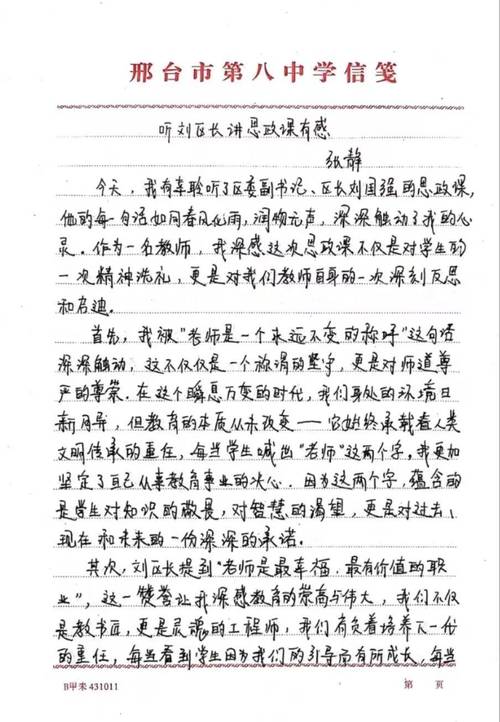 邢台市第八中学信笺
听刘区长讲思政课有感
张静
今天，我有幸聆听了区委副书记、区长刘国强的思政课，
他的每一句话如同春风化雨，润物无声，深深触动了我的心
灵。作为一名教师，我深感这次思政课不仅是对学生的
一次精神洗礼，更是对我们教师自身的一次深刻反思
和启迪．
首先，我被“老师是一个永远不变的称呼”这句话
深深触动，这不仅仅是一个称谓的坚守，更是对师道尊
严的尊崇．在这个瞬息万变的时代，我们身处的环境日
新月异，但教育的本质从未改变——它始终承载着人类
文明传承的重任，每当学生喊出“老师”这两个字，我更加
坚定了自己从事教育事业的决心．因为这两个字，蕴含的
是学生对知识的敬畏，对智慧的渴望，更是对过去、
现在和未来的一份深深的承诺．
其次，刘区长提到“老师是最幸福，最有价值的职
业”，这一赞誉让我深感教育的崇高与伟大，我们不仅
是教书匠，更是灵魂的工程师，我们肩负着培养下一代
的重任，每当看到学生因为我们的引导而有所成长，每当
B甲未431011
第 页